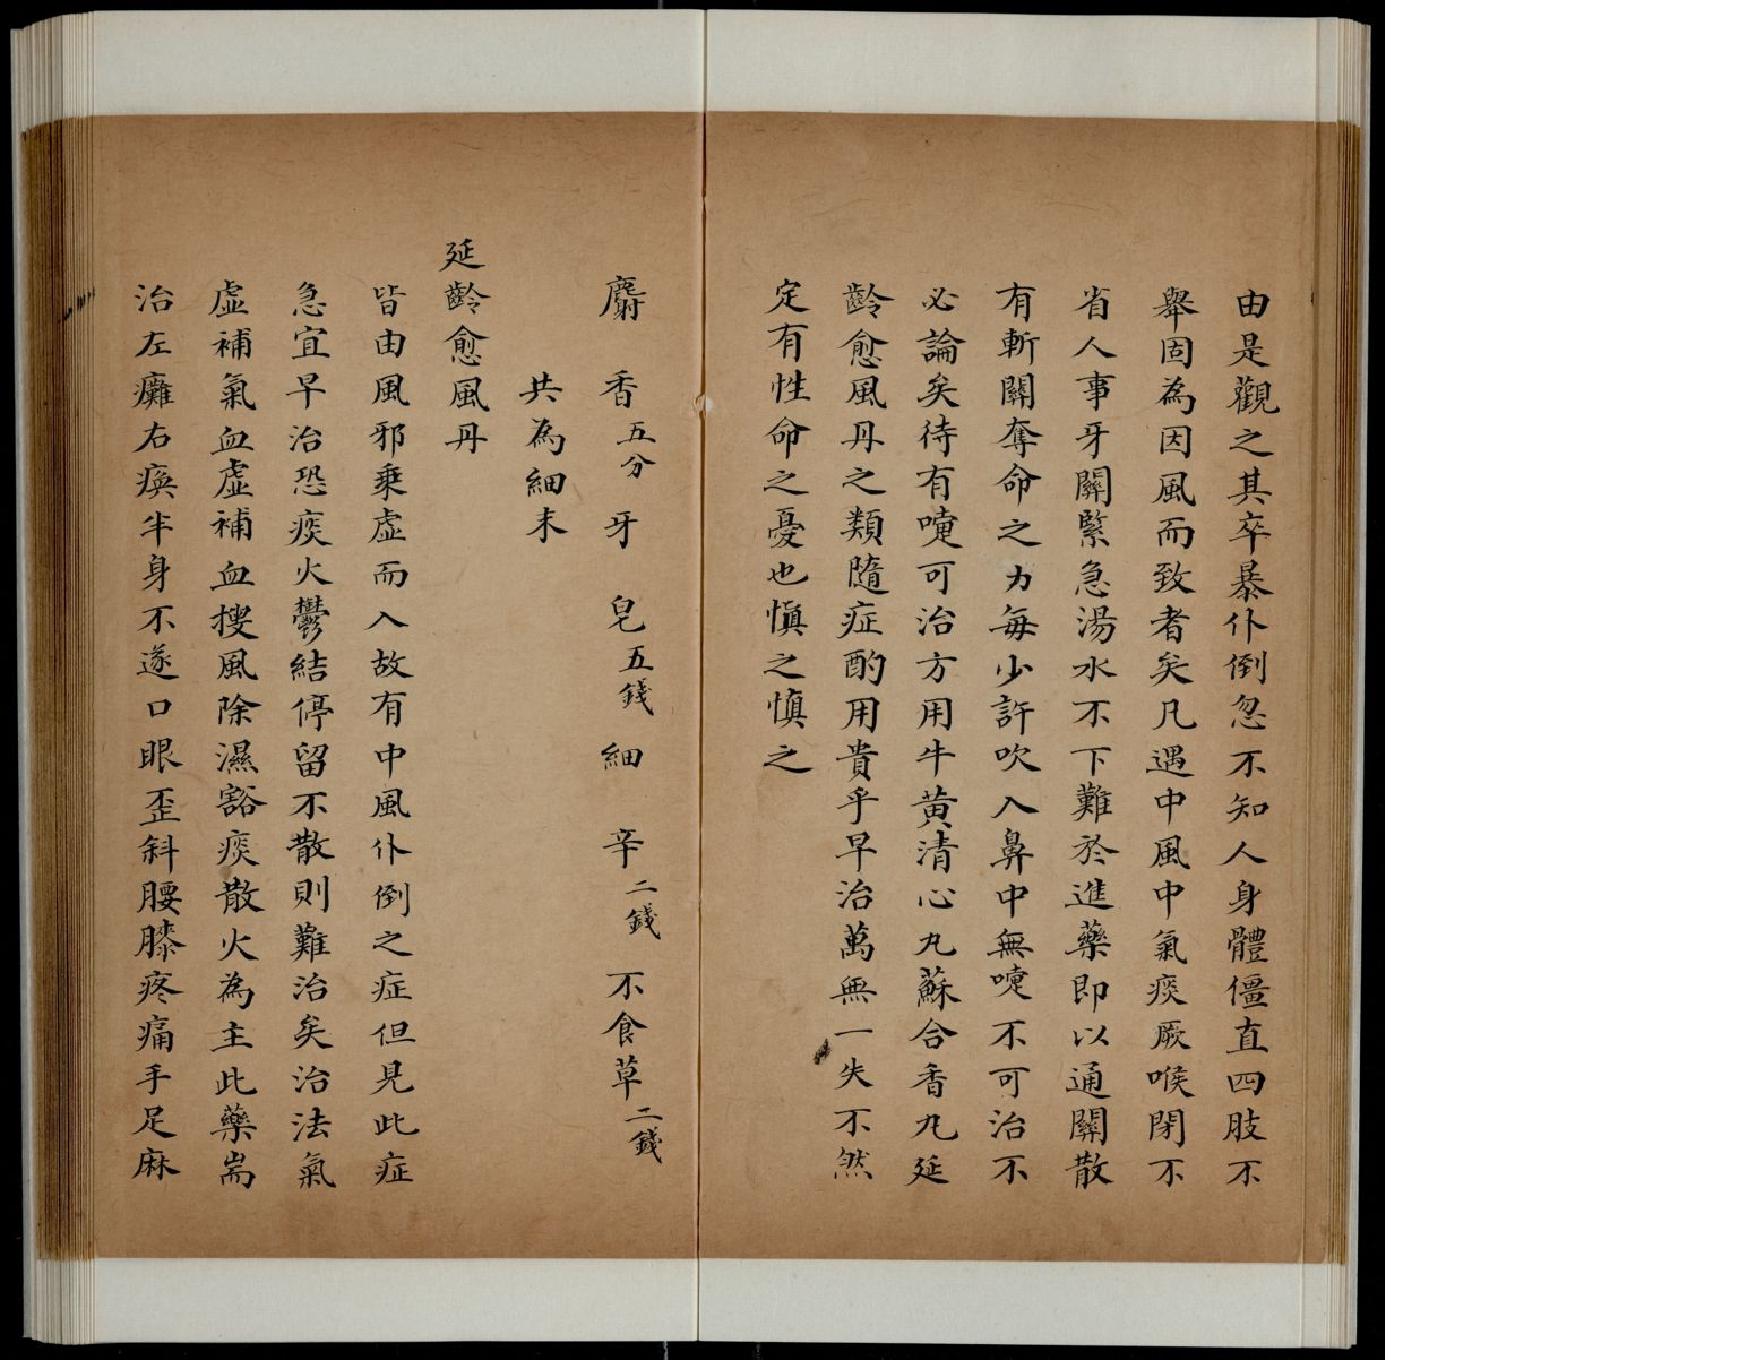 由是觀之其卒暴仆倒忽不知人身體僵直四肢不
舉固為因風而致者矣凡遇中風中氣痰厥喉閉不
省人事牙關緊急湯水不下難於進藥即以通關散
有斬關奪命之力每少許吹入鼻中無嚏不可治不
必論矣待有嚏可治方用牛黃清心丸蘇合香丸延
齡愈風丹之類隨症酌用貴乎早治萬無一失不然
定有性命之憂也慎之慎之
麝香五分 牙皂五錢 細辛二錢 不食草二錢
共為細末
延齡愈風丹
皆由風邪乘虛而入故有中風仆倒之症但見此症
急宜早治恐痰火鬱結停留不散則難治矣治法氣
虛補氣血虛補血搜風除濕豁痰散火為主此藥耑
治左癱右瘓半身不遂口眼歪斜腰膝疼痛手足麻